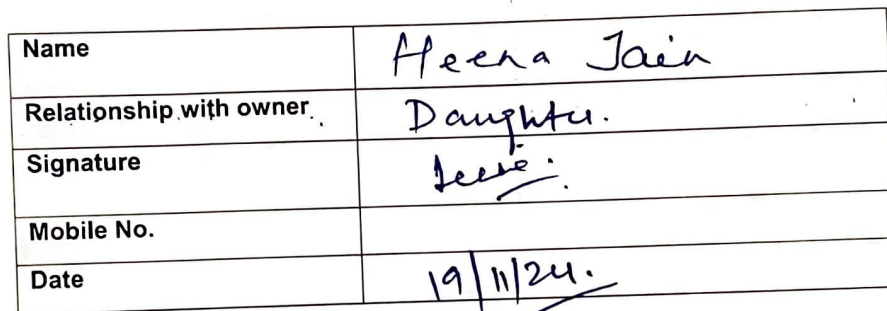 Name Heena Jain
Relationship with owner. Daughter.
Signature
Mobile No.
Date 19/11/24.